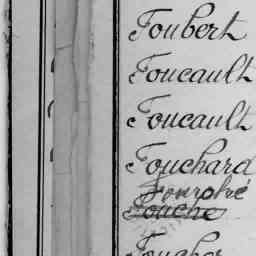 Foubert
Foucault
Foucault
Fouchard
Fourché
Fouche